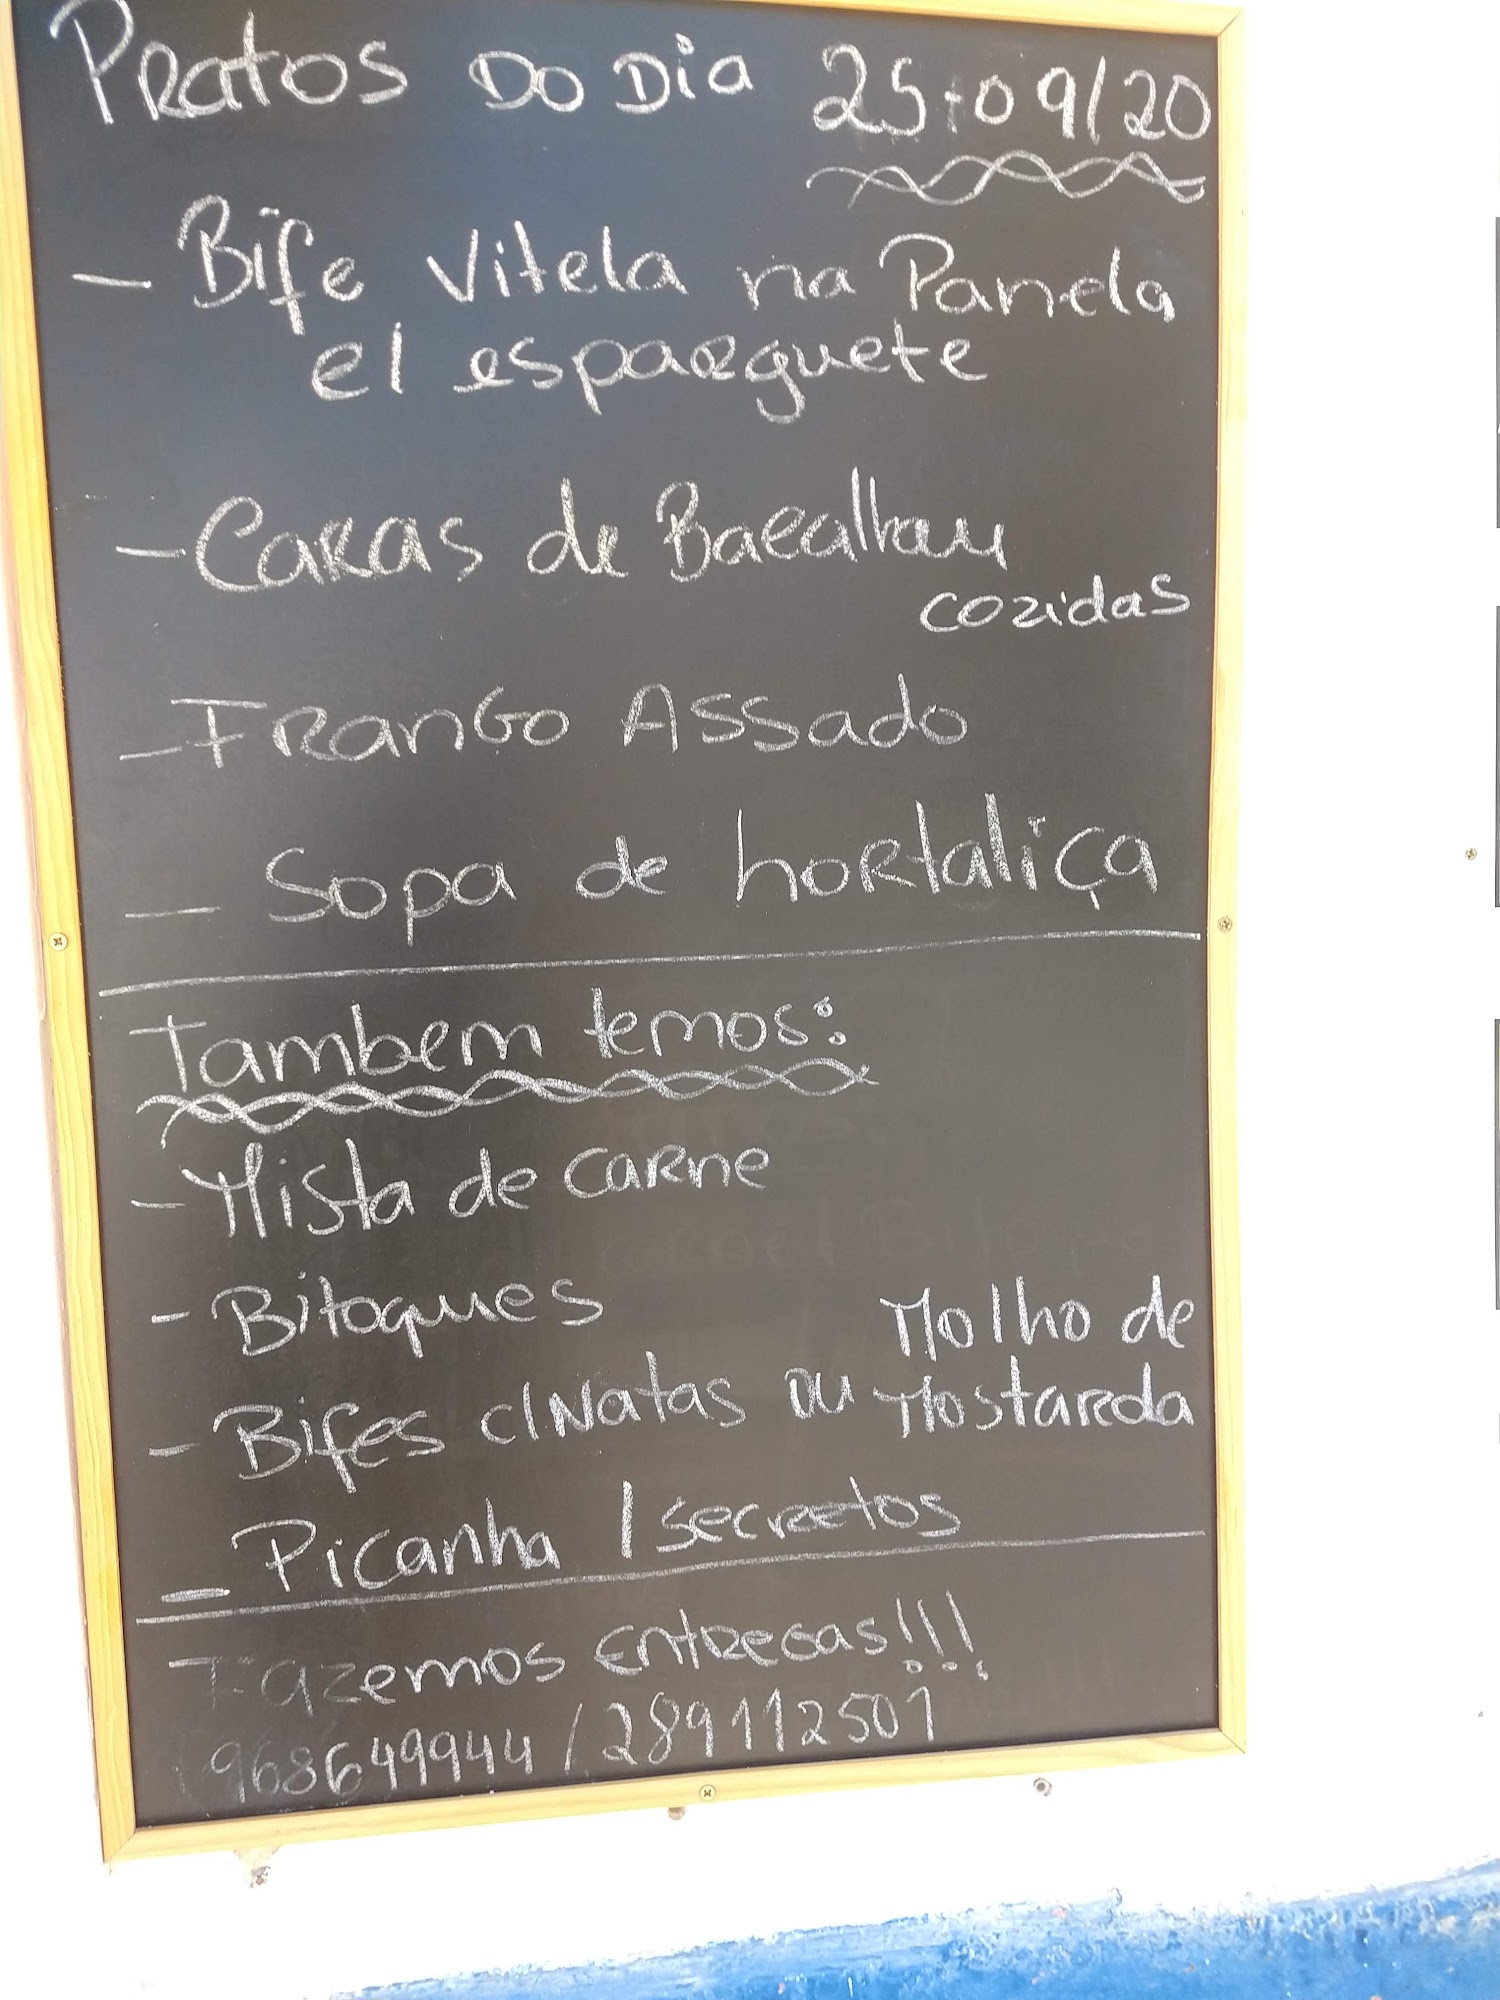 Pratos do Dia 25-09/20
- Bife Vitela na Panela
c/ esparguete
- Caras de Bacalhau
cozidas
- Frango Assado
- Sopa de hortaliça
Tambem temos:
- Mista de carne
- Bitoques
- Bifes c/Natas ou Molho de Mostarda
- Picanha / secretos
Fazemos Entregas!!!
968649944 / 289112501